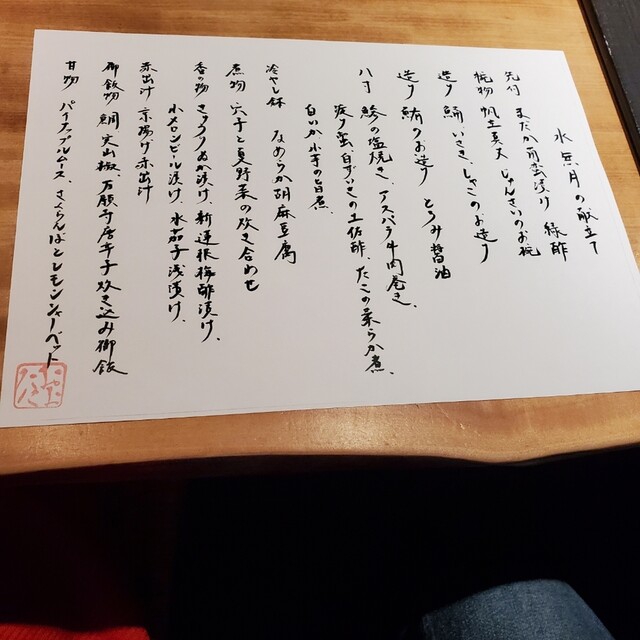 水無月の献立て
先付 まだか 煎 漬け 緑酢
椀物 帆立真丈 じゅんさいのお椀
造り 鯛、いさき、しゃこのお造り
造り 鮪のお造り とろみ醤油
八寸 鯵の塩焼き、アスパラ牛肉巻き、
白ずいきの土佐酢、たこの柔らか煮、
白いか小芋の旨煮、
冷やし鉢 なめらか胡麻豆腐
煮物 穴子と夏野菜の炊き合わせ
香の物 きゅうりぬか漬け、新蓮根梅酢漬け、
小メロンビール漬け、水茄子浅漬け、
赤出汁 京揚げ赤出汁
御飯物 鯛 実山椒 万願寺唐辛子 炊き込み御飯
甘物 パイナップルムース、さくらんぼとレモンシャーベット